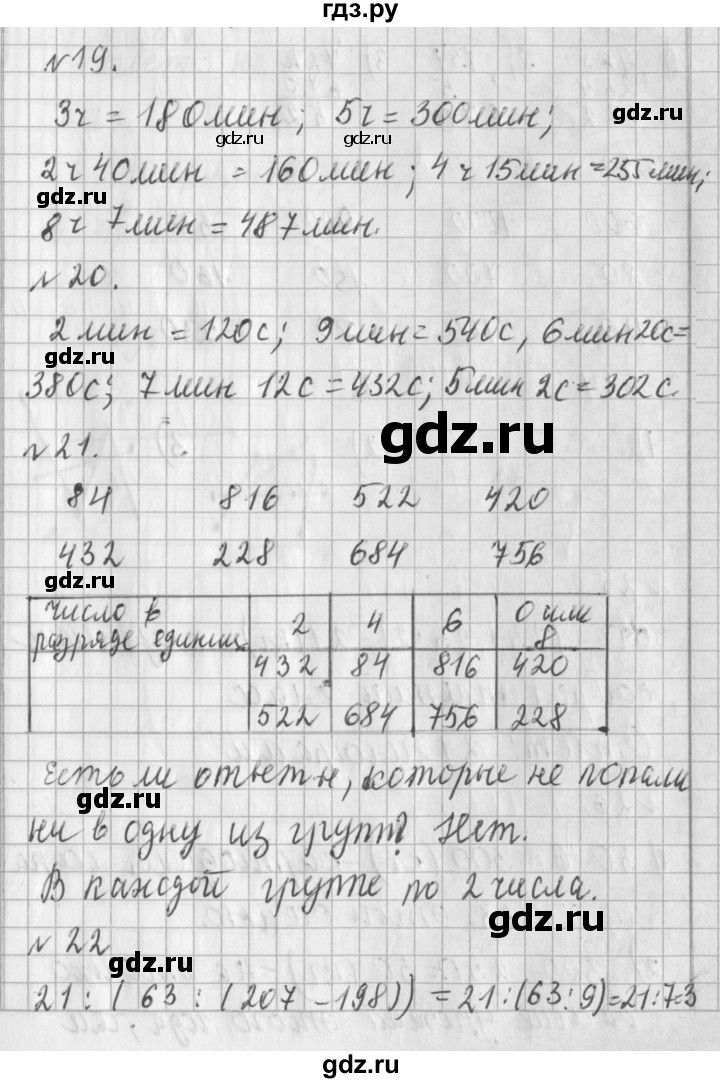 гдз.ру
№19.
3ч = 180мин; 5ч = 300мин;
gdz.ru gdz.ru
2ч 40мин = 160мин; 4ч 15мин = 255мин;
gdz.ru
8ч 7мин = 487мин.
№20.
2мин = 120с; 9мин = 540с, 6мин20с=
gdz.ru
380с; 7мин 12с = 432с; 5мин 2с = 302с.
gdz.ru
№21.
84 816 522 420
432 228 684 756
gdz.ru
число в разряде единиц 2 4 6 0 или 8
432 84 816 420
522 684 756 228
Есть ли ответы, которые не попали
gdz.ru
ни в одну из групп? Нет.
В каждой группе по 2 числа.
gdz.ru
№22
gdz.ru
21 : (63 : (207 - 198)) = 21:(63:9)=21:7=3
gdz.ru